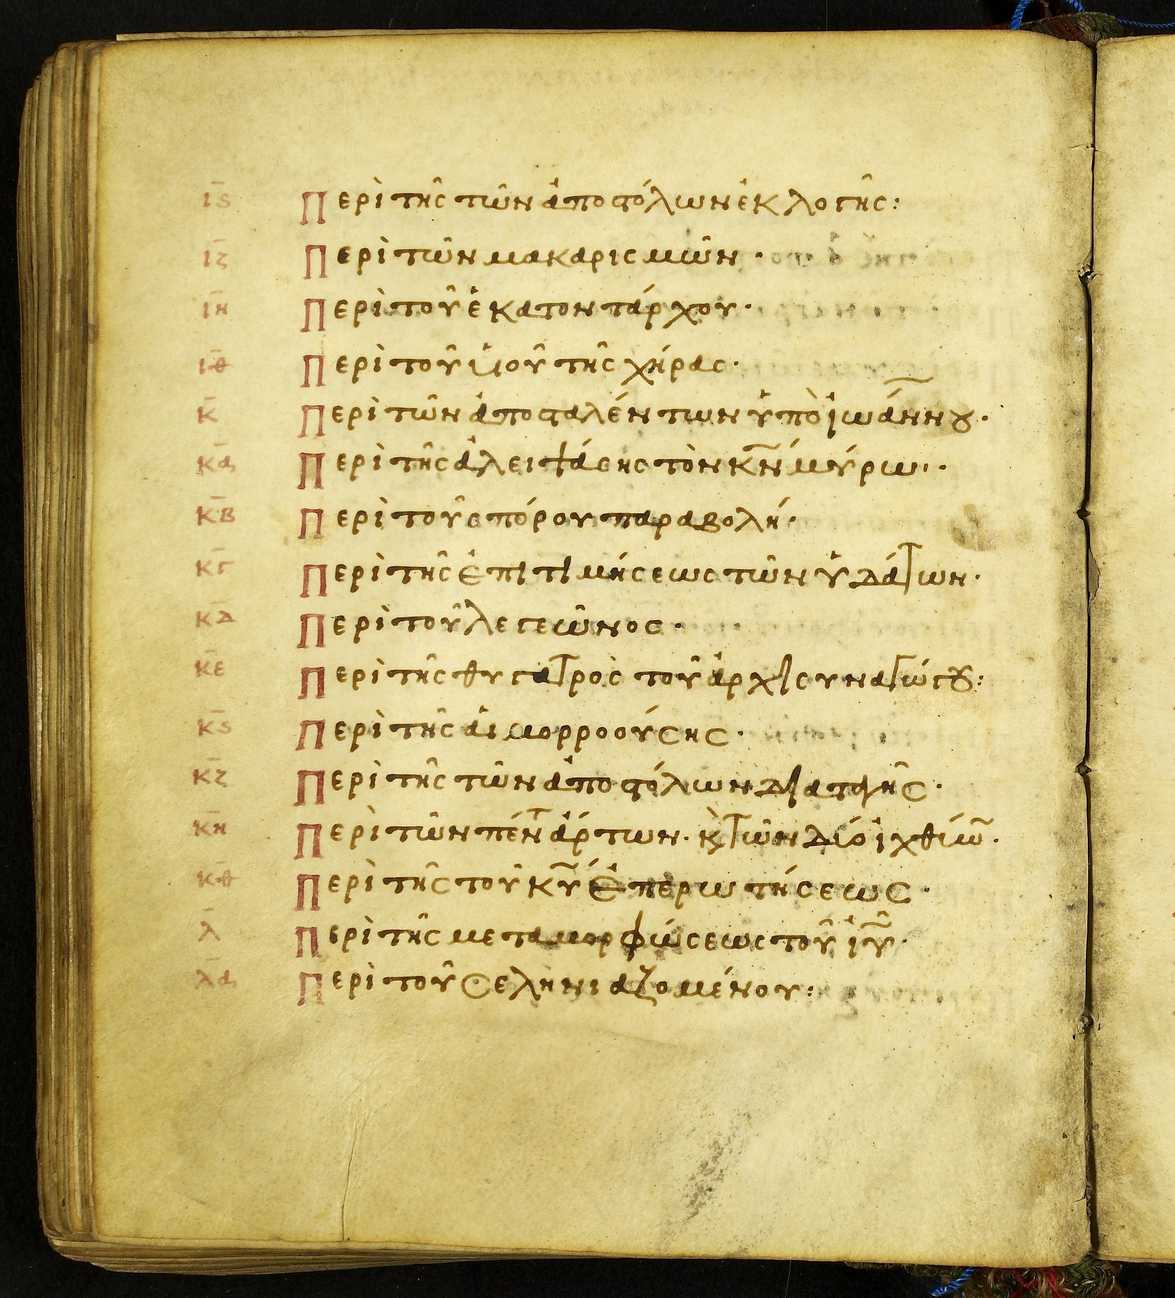 ιϛ Περὶ τῆς τῶν ἀποστόλων ἐκλογῆς:
ιζ Περὶ τῶν μακαρισμῶν·
ιη Περὶ τοῦ ἑκατοντάρχου·
ιθ Περὶ τοῦ υἱοῦ τῆς χήρας·
κ Περὶ τῶν ἀποσταλέντων ὑπὸ ἰωάννου·
κα Περὶ τῆς ἀλειψάσης τὸν κν μύρω·
κβ Περὶ τοῦ σπόρου παραβολή·
κγ Περὶ τῆς ἐπιτιμήσεως τῶν ὑδάτων·
κδ Περὶ τοῦ λεγεῶνος·
κε Περὶ τῆς θυγατρὸς τοῦ ἀρχισυναγώγου:
κϛ Περὶ τῆς αἱμορροούσης·
κζ Περὶ τῆς τῶν ἀποστόλων διαταγῆς·
κη Περὶ τῶν πέντ ἄρτων· κ τῶν δύο ἰχθύω·
κθ Περὶ τῆς τοῦ κυ ἐπερωτήσεως·
λ Περὶ τῆς μεταμορφώσεως τοῦ ιυ·
λα Περὶ τοῦ σεληνιαζομένου: